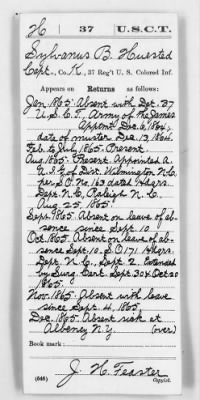 H | 37 | U.S.C.T.
Sylvanus B. Huested
Capt., Co. K, 37 Reg't U. S. Colored Inf.
Appears on
Returns as follows:
Jan 1865. Absent with Det. 37
U.S.C.T. Army of the James
Appent. Dec. 6, 1864;
date of muster Dec. 13, 1864.
Feb. to July 1865. Present
Aug. 1865. Present. Appointed A.
A.I.G. of Dist. Wilmington N.C.
per S.O. No. 163 dated Hdqrs.
Dept. N.C. Raleigh N.C.
Aug. 25, 1865.
Sept. 1865. Absent on leave of ab-
sence since Sept. 10
Oct. 1865. Absent on leave of ab-
sence Sept. 10. S.O. 171 Hdqrs.
Dept. N.C., Sept. 2. Extended
by Surg. Cert. Sept. 30 & Oct. 20
1865.
Nov. 1865. Absent with leave
since Sept. 4, 1865.
Dec. 1865. Absent sick at
Albany N.Y. (over)
Book mark:
J. H. Feaster
(646) Copyist.